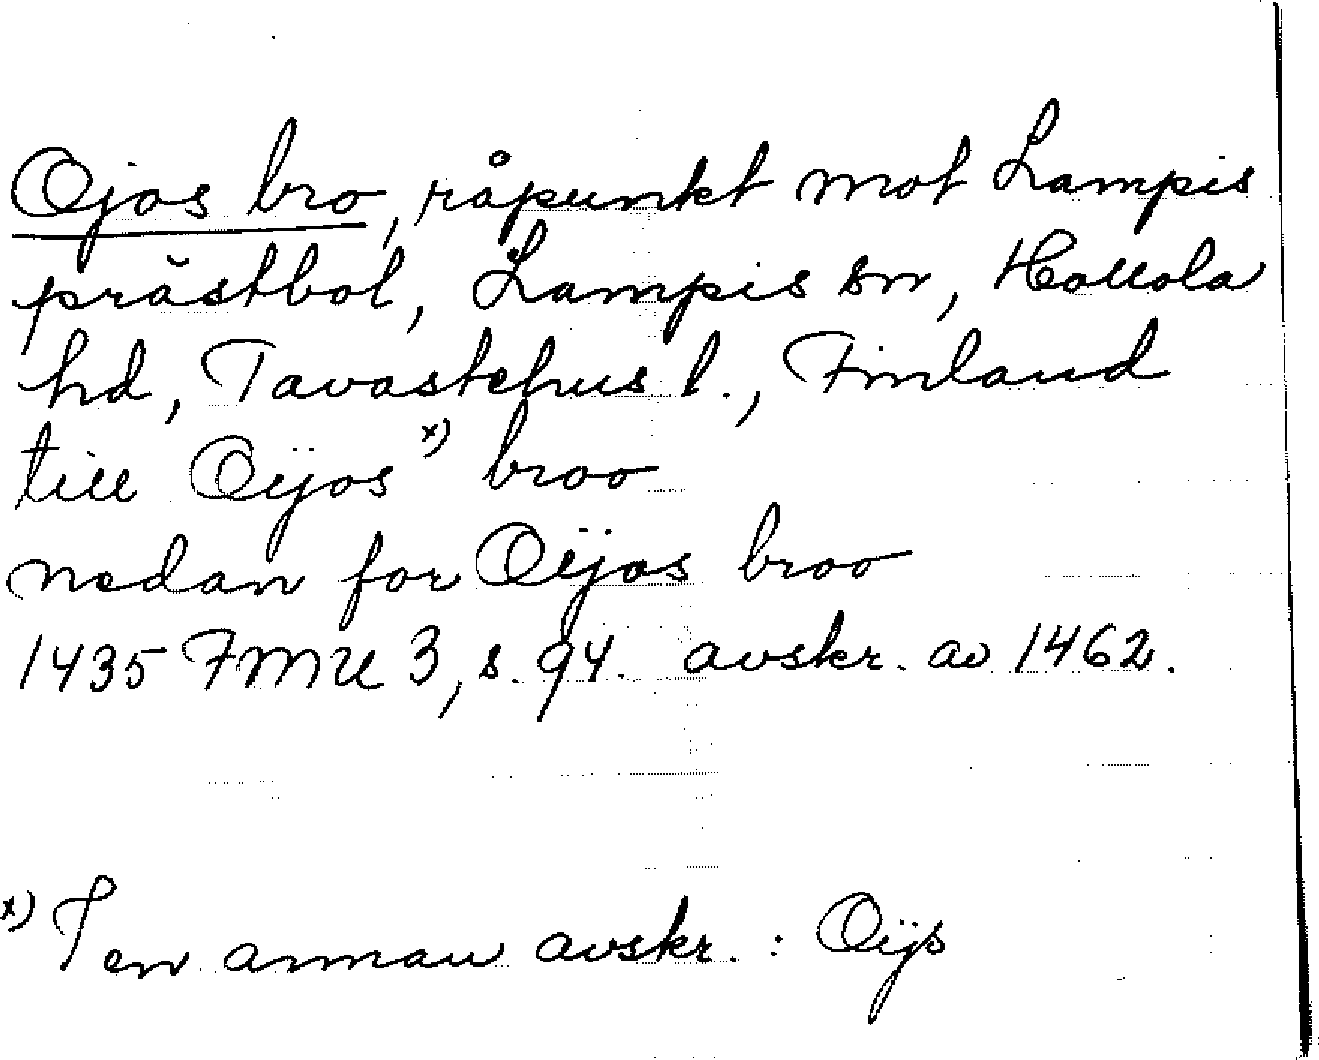 Ojos bro, råpunkt mot Lampis
prästbol, Lampis sn, Hollola
hd, Tavastehus l., Finland
till Oijos x) broo
nedan for Oijos broo
1435 FMU 3, s. 94. avskr. av 1462.
x) I en annan avskr. : Oijs